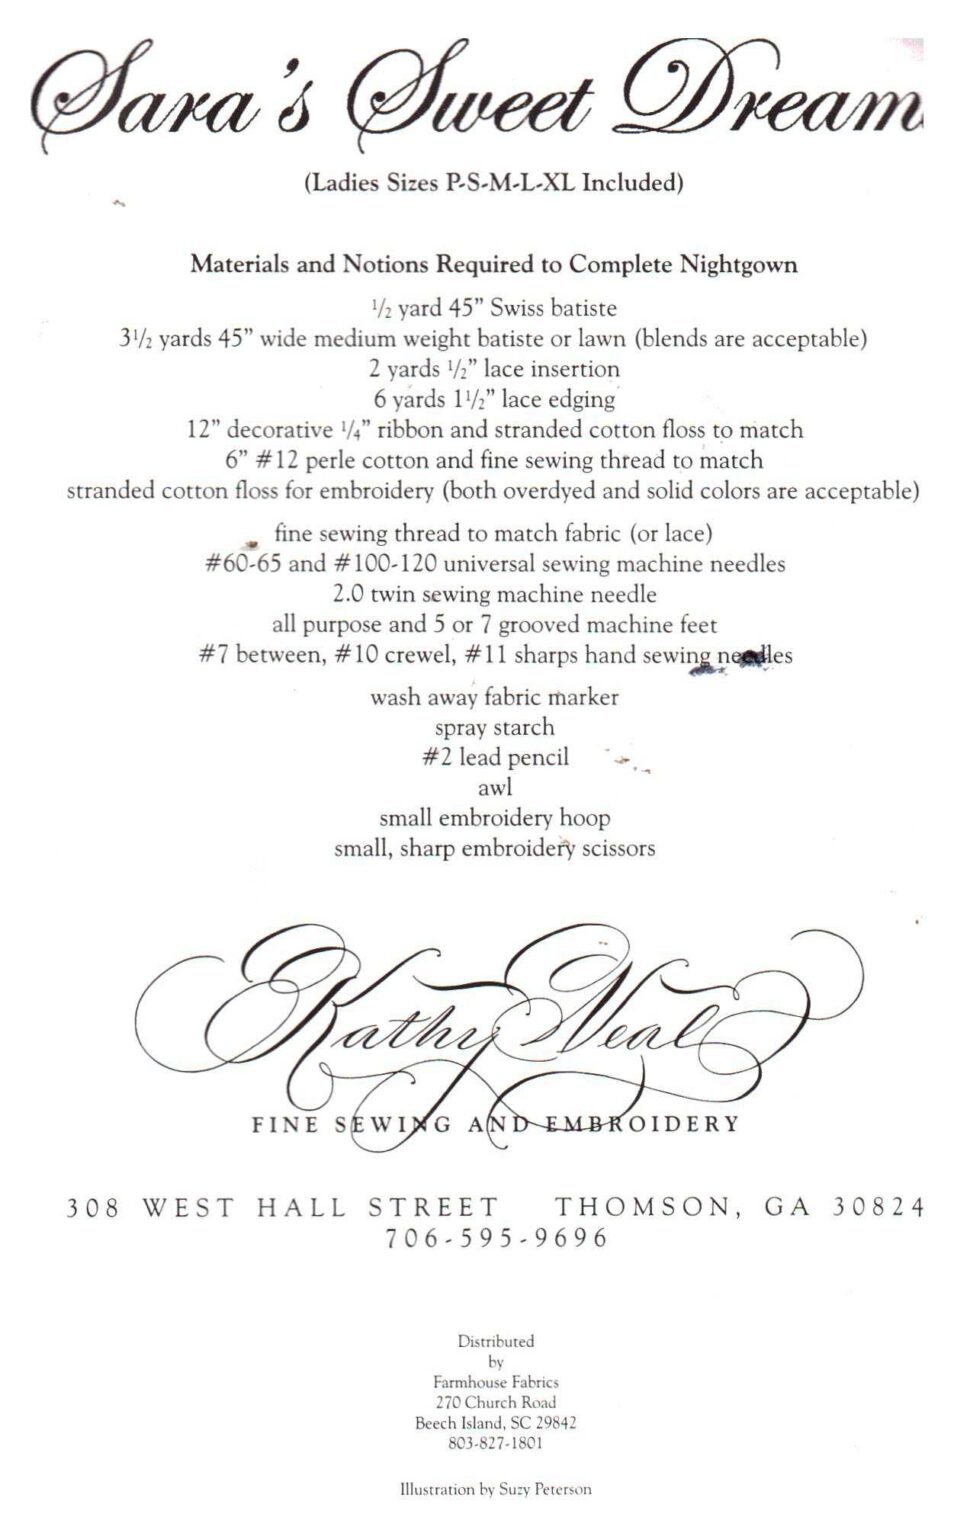 Sara's Sweet Dream
(Ladies Sizes P-S-M-L-XL Included)
Materials and Notions Required to Complete Nightgown
½ yard 45” Swiss batiste
3½ yards 45” wide medium weight batiste or lawn (blends are acceptable)
2 yards ½” lace insertion
6 yards 1½” lace edging
12” decorative ¼” ribbon and stranded cotton floss to match
6” #12 perle cotton and fine sewing thread to match
stranded cotton floss for embroidery (both overdyed and solid colors are acceptable)
fine sewing thread to match fabric (or lace)
#60-65 and #100-120 universal sewing machine needles
2.0 twin sewing machine needle
all purpose and 5 or 7 grooved machine feet
#7 between, #10 crewel, #11 sharps hand sewing needles
wash away fabric marker
spray starch
#2 lead pencil
awl
small embroidery hoop
small, sharp embroidery scissors
Kathy Neal
FINE SEWING AND EMBROIDERY
308 WEST HALL STREET THOMSON, GA 30824
706-595-9696
Distributed
by
Farmhouse Fabrics
270 Church Road
Beech Island, SC 29842
803-827-1801
Illustration by Suzy Peterson